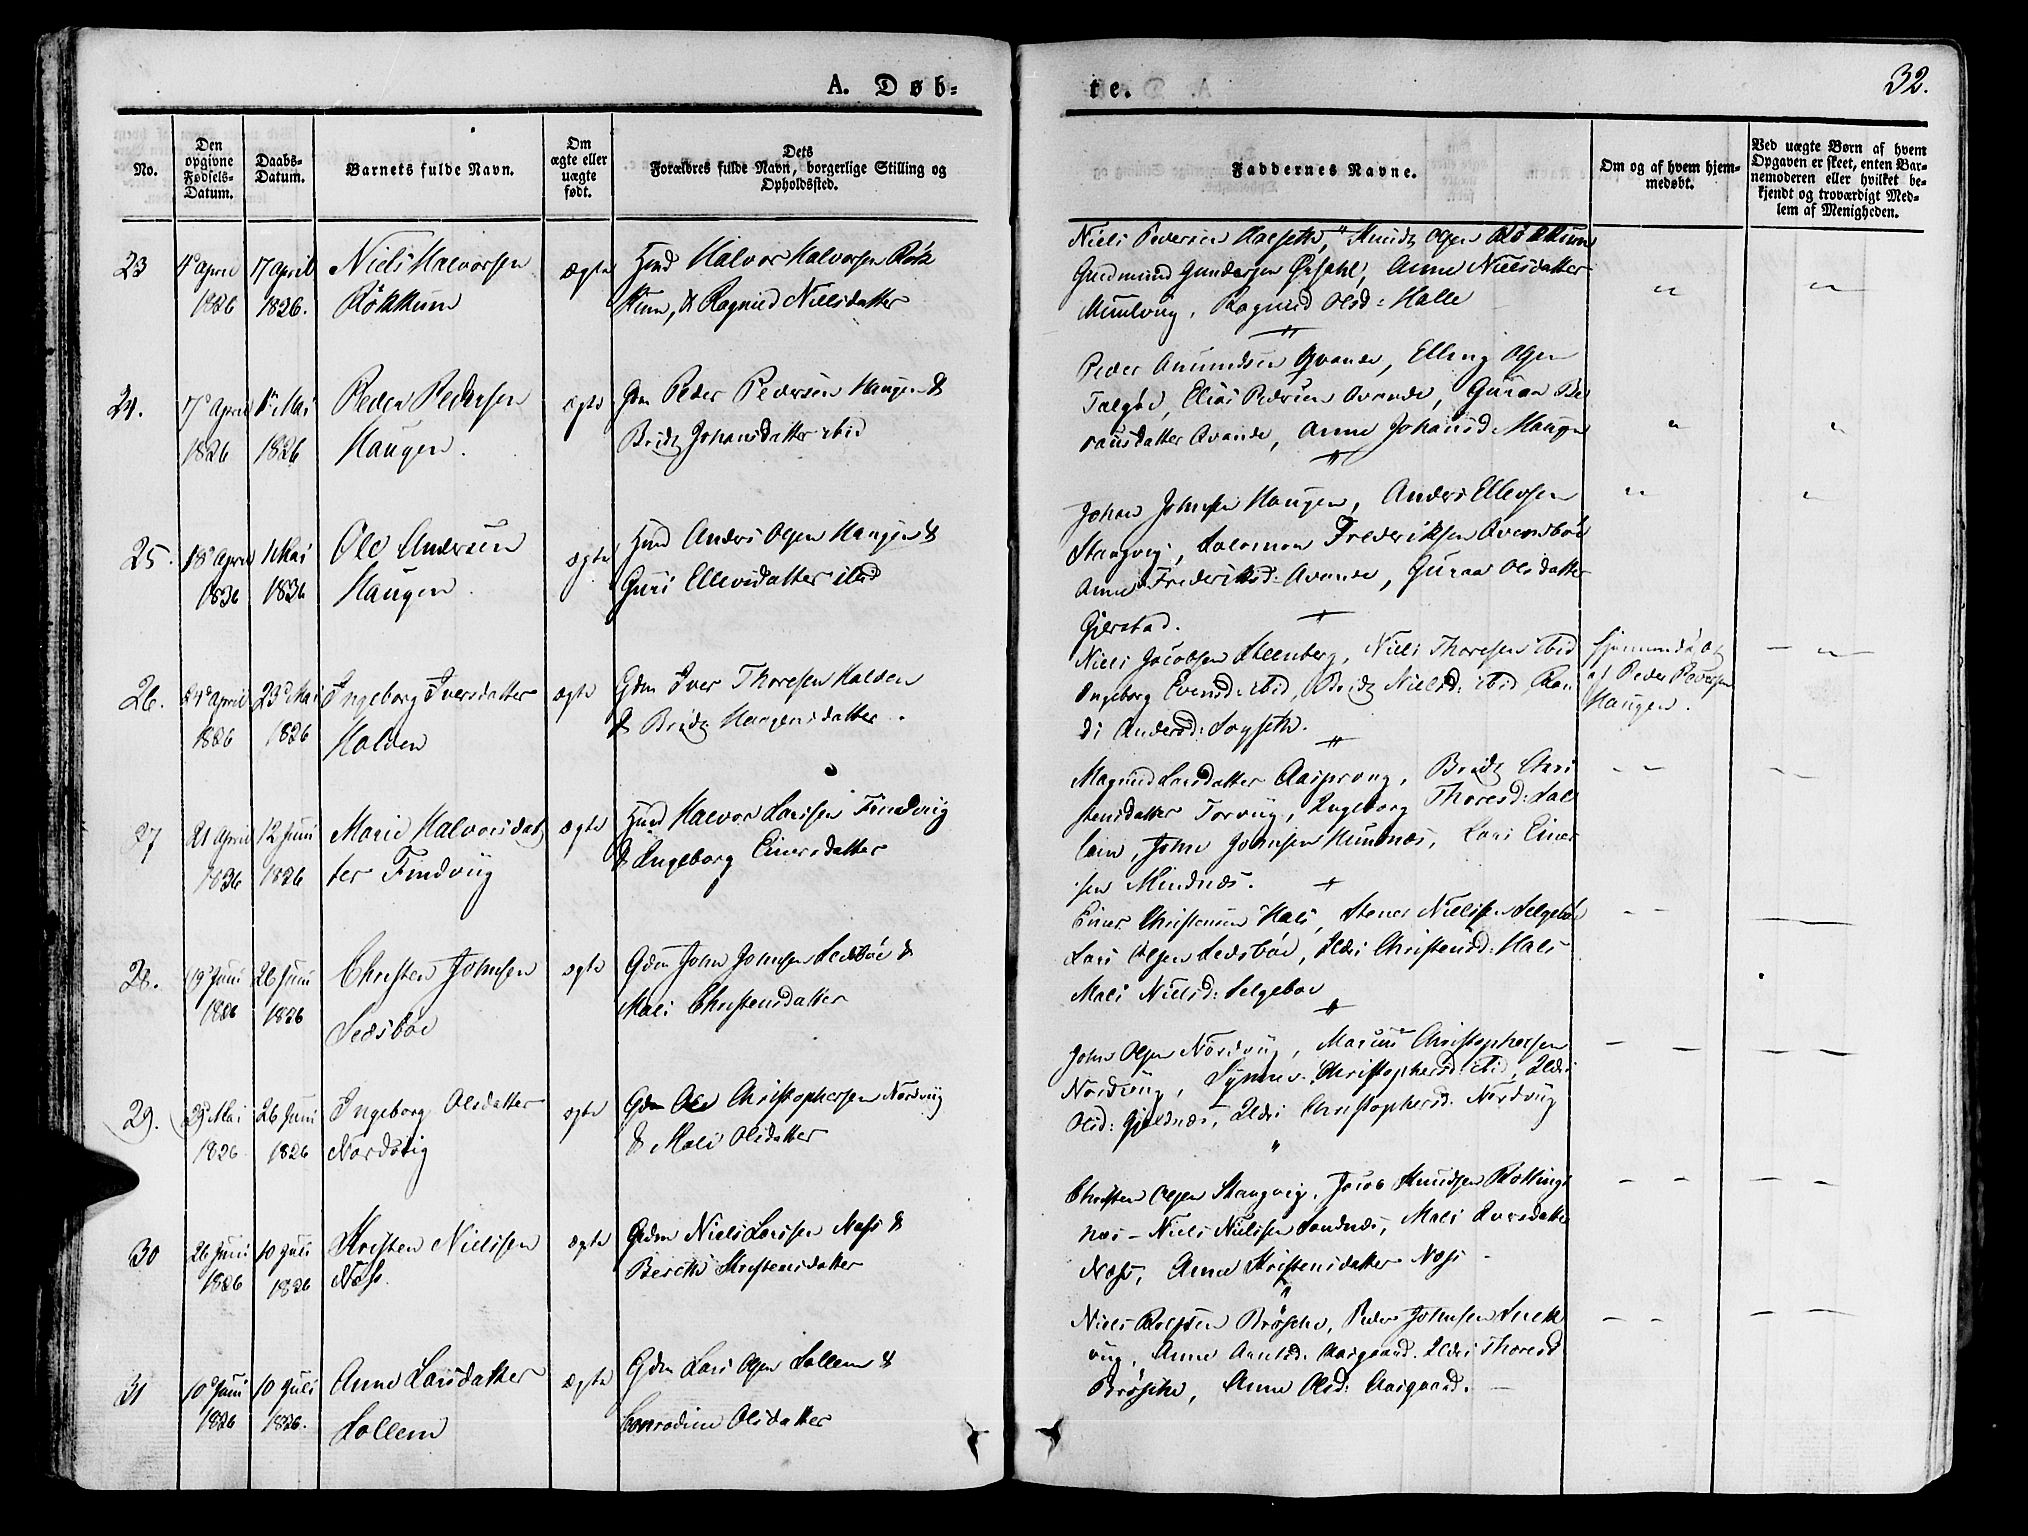 A. Døb-
te.
32.
No.
Den opgivne Fødsels-Datum.
Daabs-Datum.
Barnets fulde Navn.
Om ægte eller uægte født.
Dets
Forældres fulde Navn, borgerlige Stilling og
Opholdssted.
Faddernes Navne.
Om og af hvem hjem-
medøbt.
Ved uægte Børn af hvem
Opgaven er skeet, enten Bar-
nemoderen eller hvilket be-
kjendt og troværdigt Med-
lem af Menigheden.
23
4d April
1826
17 April
1826.
Niels Halvorsen
Røkkum
ægte
Halvor Halvorsen Røk
kum, & Ragnild Nielsdatter
Niels Pedersen Halseth, Knud Olsen Røkkum
Gudmund Gundersen Ørsahl, Anne Nielsdatter
Ragnild Olsd: Halle
24.
17d April
1826
1 Mai
1826
Peder Pedersen
Haugen.
ægte
Gdm Peder Pedersen Haugen &
Bridt Johansdatter ibid
Peder Amundsen Qvande, Elling Olsen
Talgøe, Elias Pedersen Qvande, Guraa Pe
Qvande, Anne Johansd: Haugen
25.
18d April
1836
1 Mai
1836
Ole Andersen
Haugen.
ægte
Huusmd Anders Olsen Haugen &
Guri Ellevsdatter ibid
Johan Johnsen Haugen, Anders Ellevsen
Stangvig, Salomon Frederiksen
Anne Frederiksd: Qvande, Guraa Olsdatter
Gjerstad.
26.
24d April
1826
23d Mai
1826
Ingeborg Iversdatter
Halden
ægte
Gdm Iver Thoresen Halden
& Bridt Haagensdatter.
Niels Jacobsen Steenberg, Niels Thoresen ibid
Ingeborg Evensd: ibid, Bridt Nielsd: ibid, Ran
di Andersd: Sogseth.
Hjemmedøbt
af Peder Pedersen
Haugen.
27
21 April
1836
12 Juni
1826
Marie Halvorsdat
ter Findviig
ægte
Halvor Larsen Findviig
& Ingeborg Einersdatter
Magnild Larsdatter Aasprong, Bridt Chri
stensdatter Torviig, Ingeborg Thoresd:
John Johnsen Mindnæs, Lars Einer
sen Mindnæs.
28.
19d Juni
1826
26 Juni
1826
Christen Johnsen
Sedsbøe
ægte
Gdm John Johnsen Sedsbøe &
Mali Christensdatter
Einer Christensen Hals, Stener Nielsen Selgebøe
Lars Olsen Sedsbøe, Ildri Christensd: Hals
Mali Nielsd: Selgeboe
29.
29d Mai
1826
26 Juni
1826
Ingeborg Olsdatter
Nordviig
ægte
Gdm Ole Christophersen Nordviig
& Mali Olsdatter
John Olsen Nordviig, Marius Christophersen
Nordviig, Synnev Christophersd: ibid, Ildri
Olsd: Gjeldnæs, Ildri Christophersd: Nordviig
30
26 Juni
1826
10 Juli
1826
Kristen Nielssen
Næss.
ægte
Gdm Niels Larssen Næss &
Berethe Kristensdatter
Christen Olsen Stangvig, Jacob Knudsen Røttings
næs – Niels Nielssen Sandnæs, Mali Larsdatter
Næss, Anne Kristensdatter Næss –
31
10d Juni
1826
10 Juli
1826.
Anne Larsdatter
Sollem
ægte
Gdm Lars Olsen Sollem &
Conradine Olsdatter
Niels Rolfsen Brøske, Peder Johnsen
viig, Anne Arntsd: Aasgaard. Ildri Thoresd
Brøske, Anne Olsd: Aasgaard. –